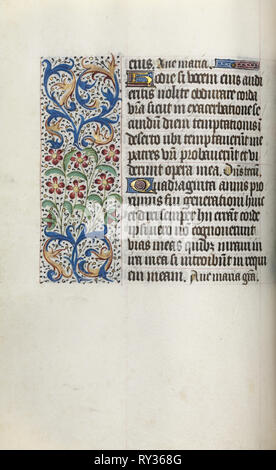 eius. Aue maria.
Hodie si vocem eius audi
eritis nolite obdurare corda
vra sicut in exacerbatione se
cundum diem temptationis in
deserto ubi temptauerunt me
patres vri probauerunt et vi
derunt opera mea.
Quadraginta annis pro
ximus fui generationi huic
et dixi semper hii errant corde
ipsi vero non cognouerunt
vias meas quibus iuraui in
ira mea si introibunt in requi
em meam. Aue maria gra.
alamy
WY368G